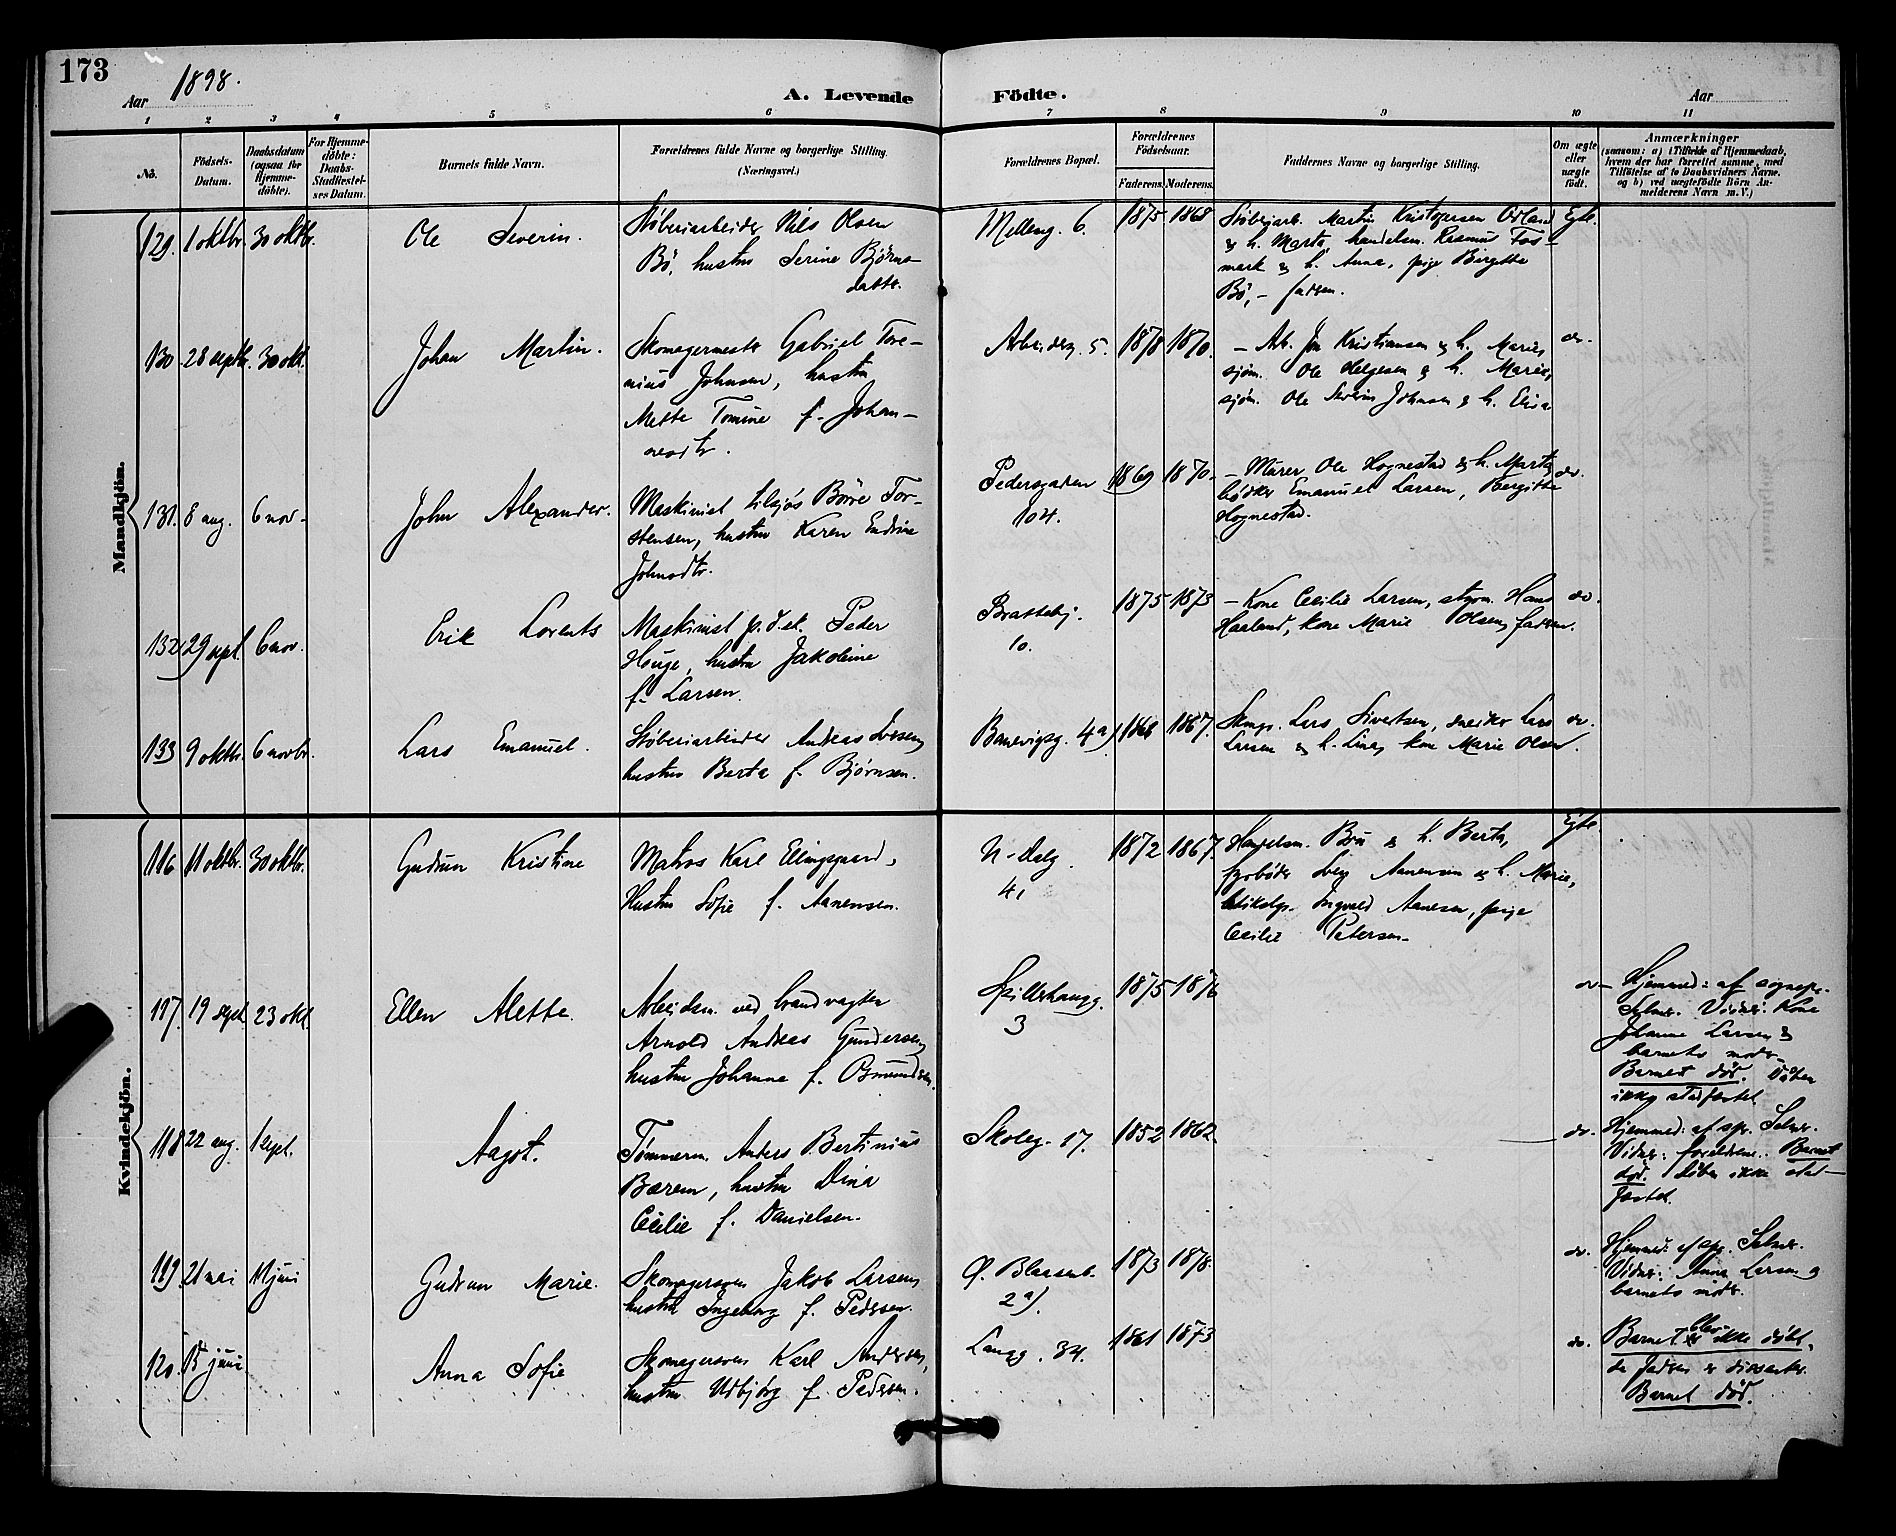 173
Aar 1898.
A. Levende Födte.
Aar
1 2 3 4 5 6 7 8 9 10 11
No.
Födsels-Datum.
Daabsdatum (ogsaa for Hjemme-döbte).
For Hjemme-döbte: Daabs-Stadfæstel-ses Datum.
Barnets fulde Navn.
Forældrenes fulde Navne og borgerlige Stilling. (Næringsvei.)
Forældrenes Bopæl.
Forældrenes Födselsaar.
Faderens. Moderens.
Faddernes Navne og borgerlige Stilling.
Om ægte eller uægte födt.
Anmærkninger
(saasom: a) i Tilfælde af Hjemmedaab,
hvem der har forrettet samme, med
Tilföielse af to Daabsvidners Navne.
og b) ved uægtefödte Börn An-
melderens Navn m. V.)
Mandkjön.
129. 1 oktbr. 30 oktbr. Ole Severin.
Støberiarbeider Nils Olsen
Bø, hustru Serine Bjørns-
datter.
Melleng. 6. 1875 1868
Støberiarb. Martin Kristofersen
& h. Marta, handelsm. Rasmus Fos-
mark & h. Anna, pige Birgitte
Bø, – faderen.
Egte.
130 28 septbr. 30 okt. Johan Martin.
Skomagermester Gabriel Tore-
nius Johnsen, hustru
Mette Tomine f. Johan-
nesdtr.
Arbeiderg. 5. 1878 1870.
– Arb. Jon Kristiansen & h. Marie,
sjøm. Ole Helgesen & h. Marie,
sjøm. Ole Severin Johnsen & h. Elisa
do.
131. 8 aug. 6 nov. John Alexander.
Maskinist tilsjøs Børre Tor-
stensen, hustru Karen Endrine
Johnsdtr.
Pedersgaden 104. 1869 1870.
– Murer Ole Hognestad & h. Marta,
bødker Emanuel Larsen, Bergitte
Hognestad.
do.
132 29 sept. 6 nov. Erik Lorents
Maskinist p. d. sk. Peder
Houge, hustru Jakobine
f. Larsen.
Brattebj. 10. 1875 1873
– Kone Cecilie Larsen, styrm. Hans
Haaland, kone Marie Olsen, faderen.
do.
133 9 oktbr. 6 novbr. Lars Emanuel.
Støberiarbeider Andreas
hustru Berta f. Bjørnsen.
Banevigsg. 4a) 1868 1867.
Skmgs. Lars Sivertsen, snekker Lars
Larsen & h. Lina, kone Marie Olsen.
do.
Kvindekjön.
116 11 oktbr. 30 oktbr. Gudrun Kristine
Matros Karl Ellingsgaard,
Hustru Sofie f. Aanensen.
N. Dalg. 41 1872 1867.
& h. Berta,
fyrbøder Aanensen & h. Marie,
Ingvald Aanesen, pige
Cecilie Petersen.
Egte.
117. 19 sept. 23 okt. Ellen Alette.
Arbeidsm. ved brandvagten
Arnold Andreas Gundersen,
hustru Johanne f. Osmundsen.
Spilderhaugg. 3 1875 1876
do. – Hjemmed: af sognepr.
Selmer. Vidner: Kone
Johanne Larsen &
barnets moder.
Barnet død. Daaben
ikke stadfæstet
118 22 aug. 1 sept. Aagot.
Tømmerm. Anders Bertinius
Bærem, hustru Dina
Cecilie f. Danielsen.
Skoleg. 17. 1852 1862.
do. Hjemmed: af spr. Selmer.
Vidner: forældrene. Barnet
død. Daaben ikke stad-
fæstet.
119. 21 mai 11 juni Gudrun Marie.
Skomagersvend Jakob Larsen,
hustru Ingeborg f. Pedersen.
Ø. Blaasenb. 2a). 1873 1878.
do. Hjemmed: af spr. Selmer.
Vidner: Anna Larsen og
barnets moder.
120. 15 juni Anna Sofie
Skomagersvend Karl Andersen,
hustru Udbjørg f. Pedersen.
Langg. 34. 1861 1873
do. Barnet blev ikke døbt,
da faderen er dissenter.
Barnet død.